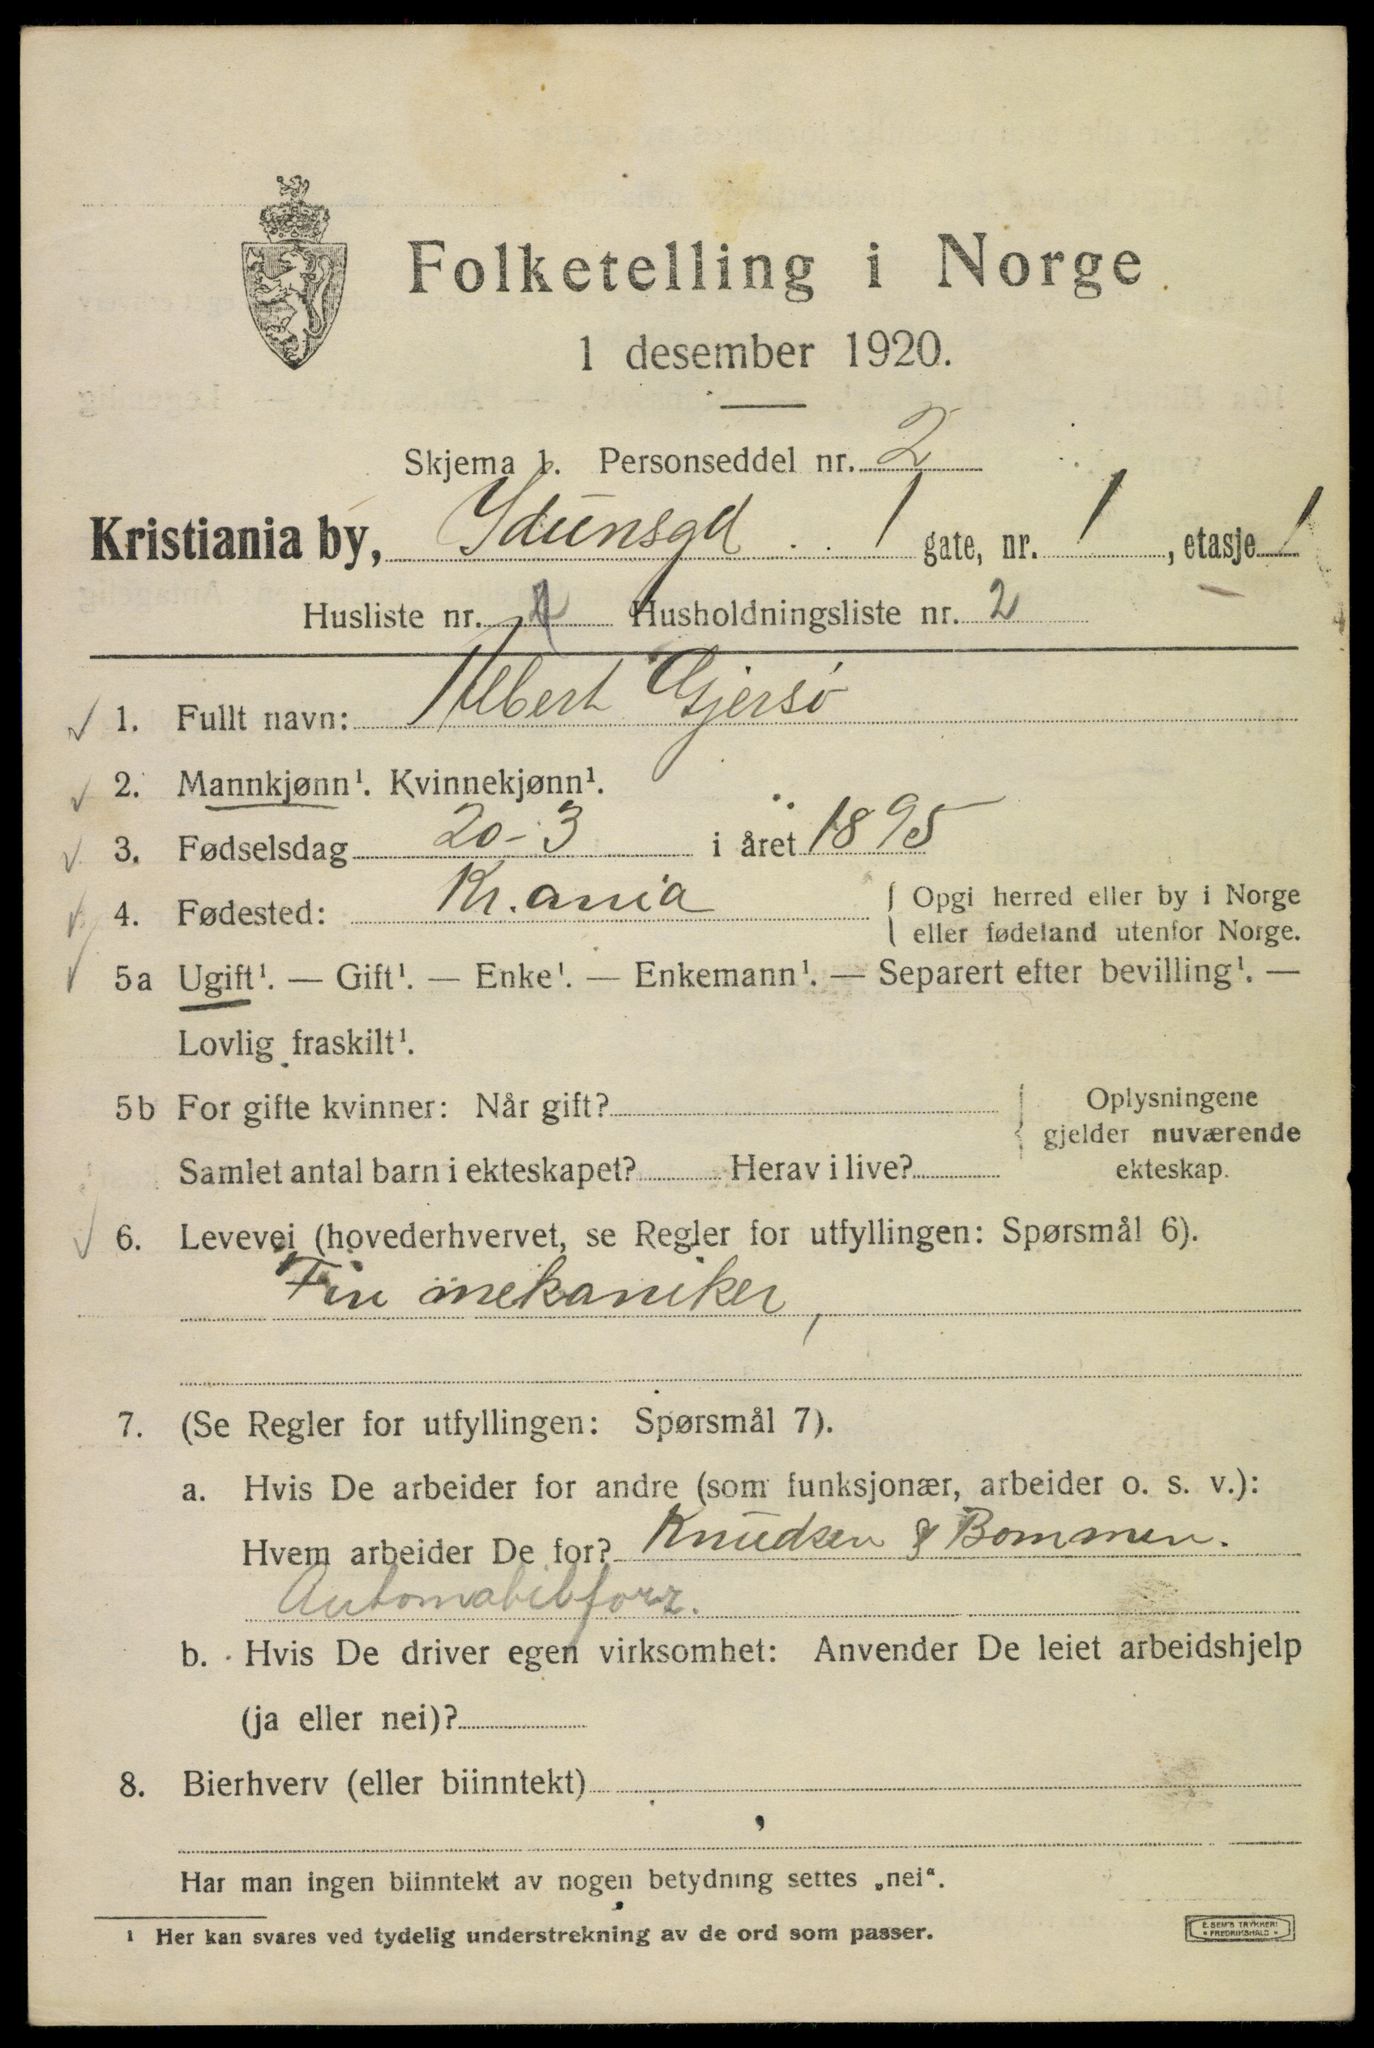 Folketelling i Norge
1 desember 1920.
Skjema 1. Personseddel nr. 2
Kristiania by, Ydunsgd 1 gate, nr. 1, etasje 1
Husliste nr. Husholdningsliste nr. 2
1. Fullt navn: Albert Gjersö
2. Mannkjønn¹. Kvinnekjønn¹.
3. Fødselsdag 20-3 i året 1895
4. Fødested: Kr.ania { Opgi herred eller by i Norge
eller fødeland utenfor Norge.
5a Ugift¹. — Gift¹. — Enke¹. — Enkemann¹. — Separert efter bevilling¹. —
Lovlig fraskilt¹.
5b For gifte kvinner: Når gift? { Oplysningene
gjelder nuværende
Samlet antal barn i ekteskapet? Herav i live? ekteskap.
6. Levevei (hovederhvervet, se Regler for utfyllingen: Spørsmål 6).
Fin mekaniker,
7. (Se Regler for utfyllingen: Spørsmål 7).
a. Hvis De arbeider for andre (som funksjonær, arbeider o. s. v.):
Hvem arbeider De for? Knudsen & Bommen.
Automobilforr.
b. Hvis De driver egen virksomhet: Anvender De leiet arbeidshjelp
(ja eller nei)?
8. Bierhverv (eller biinntekt)
Har man ingen biinntekt av nogen betydning settes „nei“.
¹ Her kan svares ved tydelig understrekning av de ord som passer.
E. SEM'S TRYKKERI
• FREDRIKSHALD •